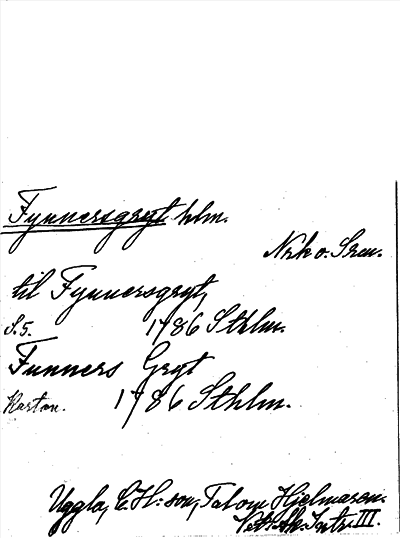 Fynnersgryt hlm.
Nrk o. Srm.
til Fynnersgryt,
S. 5. 1786 Sthlm.
Funners Gryt
Karton. 1786 Sthlm.
Uggla, C. H:son, Tal om Hjelmaren.
Vet. Ak. Intr. III.